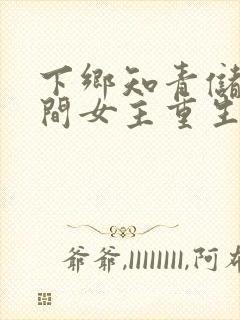 下鄉知青儲
間女主重生
爺爺,llllllll,阿布